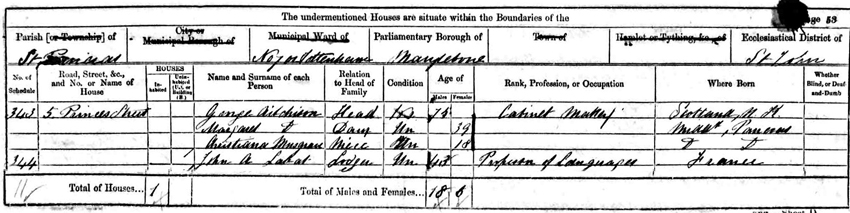 The undermentioned Houses are situate within the Boundaries of the
Page 53
Parish [or Township] of
City or Municipal Borough of
Municipal Ward of
Parliamentary Borough of
Town of
Hamlet or Tything, &c., of
Ecclesiastical District of
St Pancras
Marylebone
St John
No. of Schedule
Road, Street, &c., and No. or Name of House
HOUSES
In-habited
Unin-habited (U.), or Building (B.)
Name and Surname of each Person
Relation to Head of Family
Condition
Age of
Males
Females
Rank, Profession, or Occupation
Where Born
Whether Blind, or Deaf-and-Dumb
343 5 Princes Street George Aitchison Head 75 Cabinet Scotland
Margaret Do Daur Un 39 Middx, Pancras
Christiana Musgrave Niece Un 18 Do Do
344 John A Lodger Un Professor of Languages France
Total of Houses... 1
Total of Males and Females...